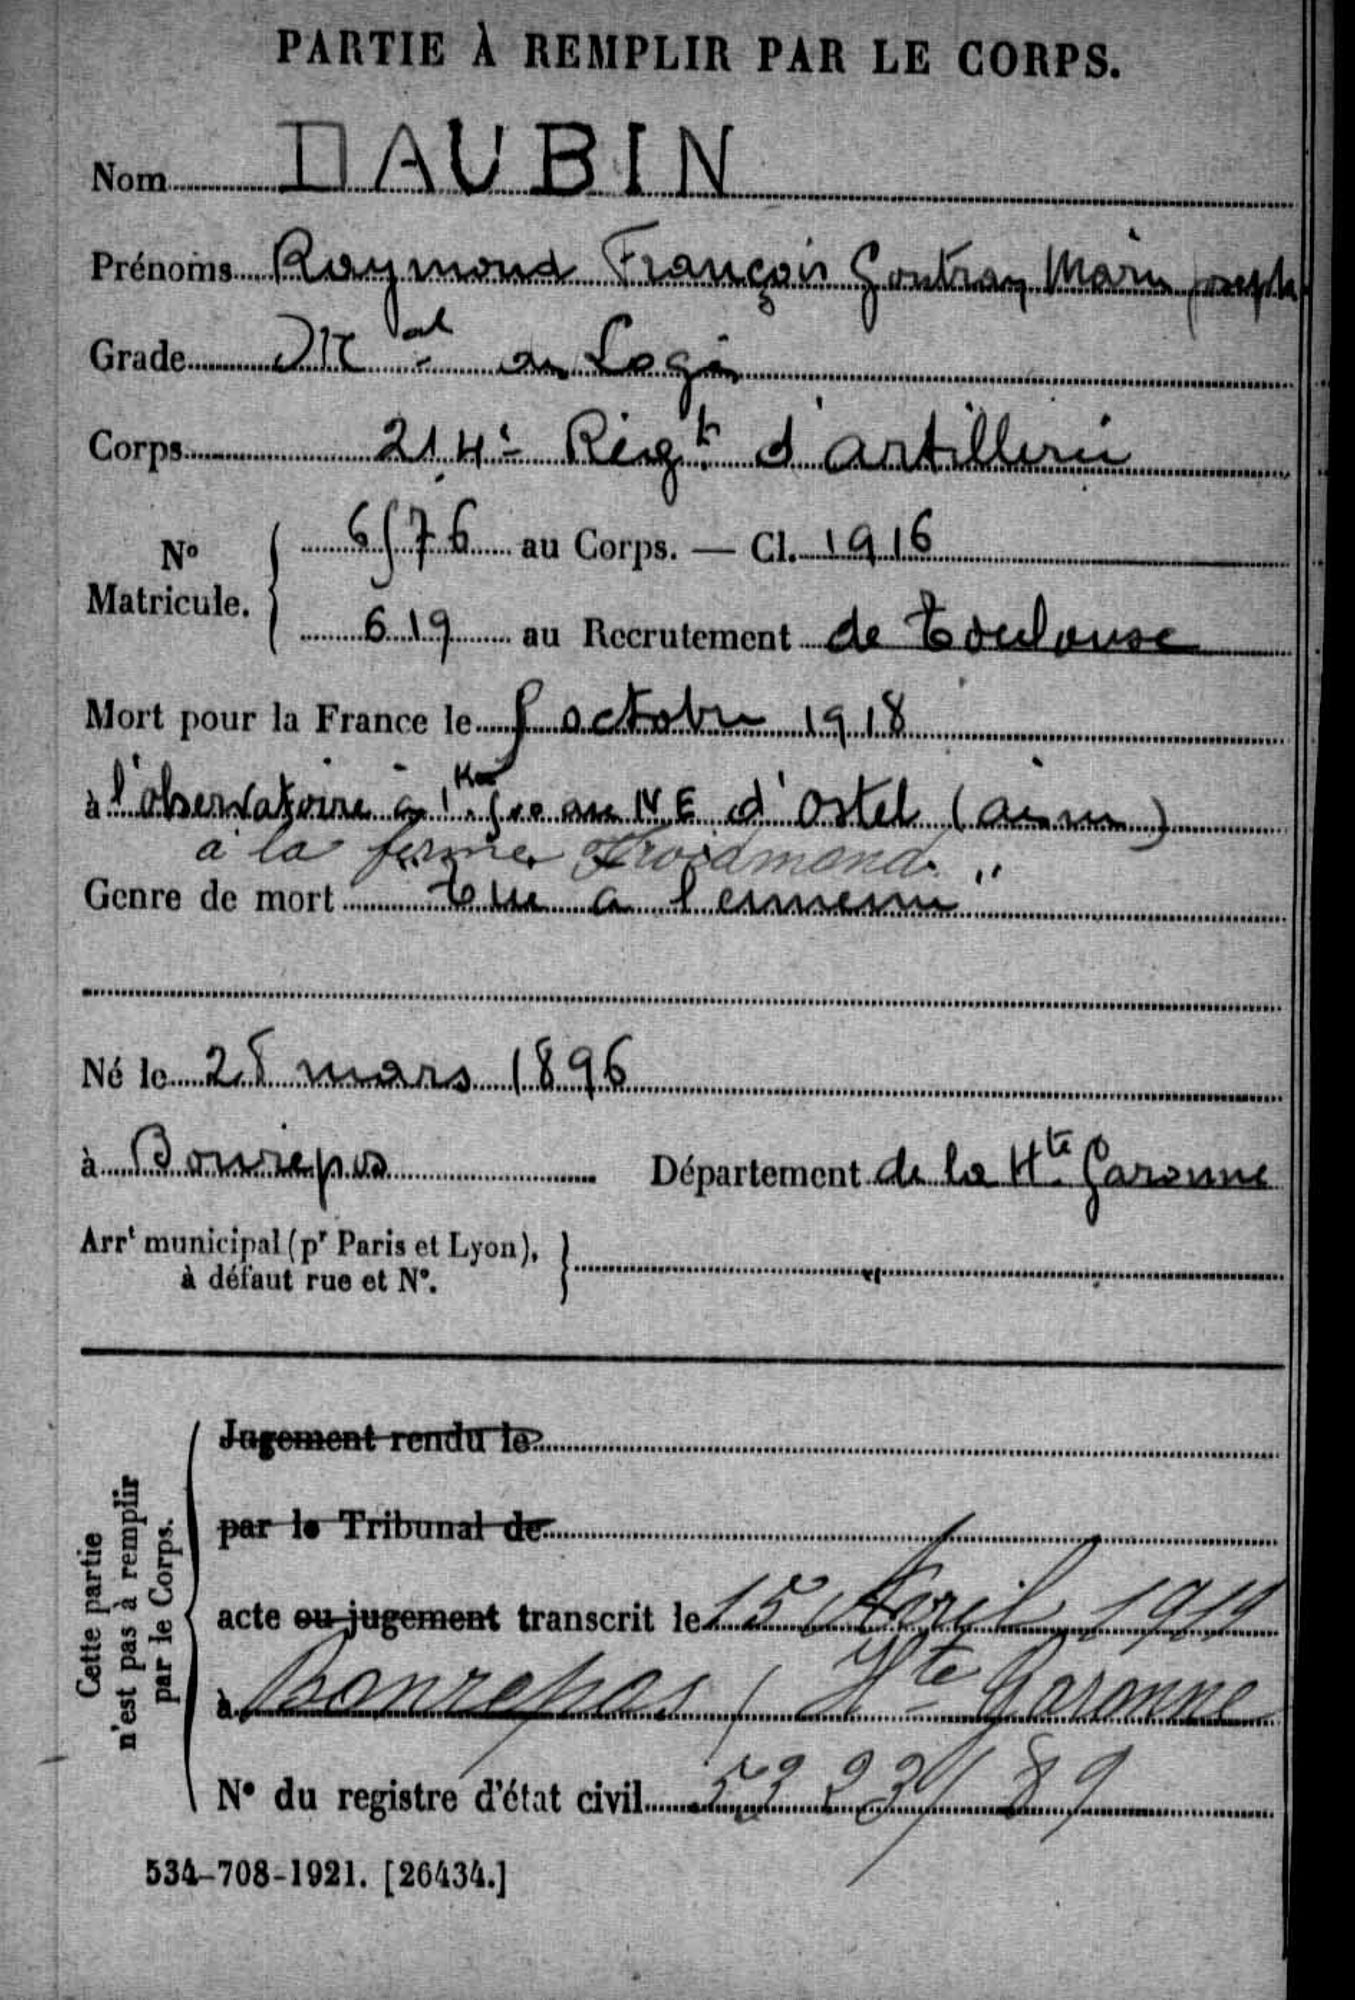 PARTIE À REMPLIR PAR LE CORPS.
Nom DAUBIN
Prénoms Raymond François Gontran Marie Joseph
Grade Mal des Logis
Corps 214e Régt d'artillerie
No Matricule. 6576 au Corps. — Cl. 1916
619 au Recrutement de Toulouse
Mort pour la France le 5 octobre 1918
à l'observatoire à 1 Km 500 au NE d'Ostel (aisne)
à la ferme Froidmond
Genre de mort "Tué à l'ennemi"
Né le 28 mars 1896
à Bonrepos Département de la Hte Garonne
Arrt municipal (pr Paris et Lyon), à défaut rue et No.
Cette partie n'est pas à remplir par le Corps.
Jugement rendu le
par le Tribunal de
acte ou jugement transcrit le 15 Avril 1919
à Bonrepos / Hte Garonne
No du registre d'état civil 5323/89
534-708-1921. [26434.]